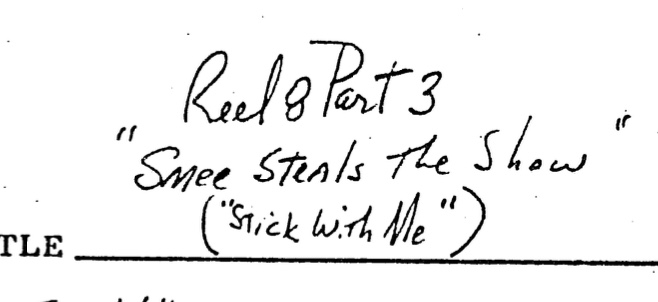 Reel 8 Part 3
"Smee Steals The Show"
("Stick With Me")
TLE